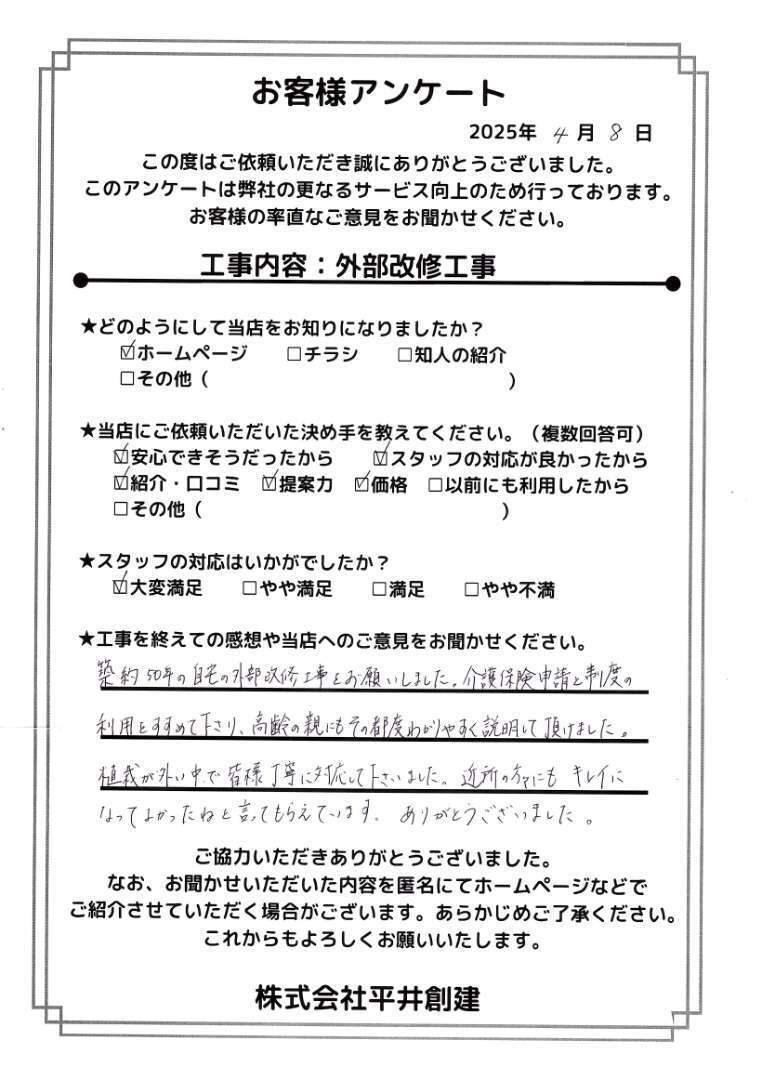 お客様アンケート
2025年 4月 8日
この度はご依頼いただき誠にありがとうございました。
このアンケートは弊社の更なるサービス向上のため行っております。
お客様の率直なご意見をお聞かせください。
工事内容：外部改修工事
★どのようにして当店をお知りになりましたか？
☑ホームページ □チラシ □知人の紹介
□その他（ ）
★当店にご依頼いただいた決め手を教えてください。（複数回答可）
☑安心できそうだったから ☑スタッフの対応が良かったから
☑紹介・口コミ ☑提案力 ☑価格 □以前にも利用したから
□その他（ ）
★スタッフの対応はいかがでしたか？
☑大変満足 □やや満足 □満足 □やや不満
★工事を終えての感想や当店へのご意見をお聞かせください。
築約50年の自宅の外部改修工事をお願いしました。介護保険申請と制度の
利用をすすめて下さり、高齢の親にもその都度わかりやすく説明して頂けました。
植栽が外い中で皆様丁寧に対応して下さいました。近所の方々にもキレイに
なってよかったねと言ってもらえています。ありがとうございました。
ご協力いただきありがとうございました。
なお、お聞かせいただいた内容を匿名にてホームページなどで
ご紹介させていただく場合がございます。あらかじめご了承ください。
これからもよろしくお願いいたします。
株式会社平井創建